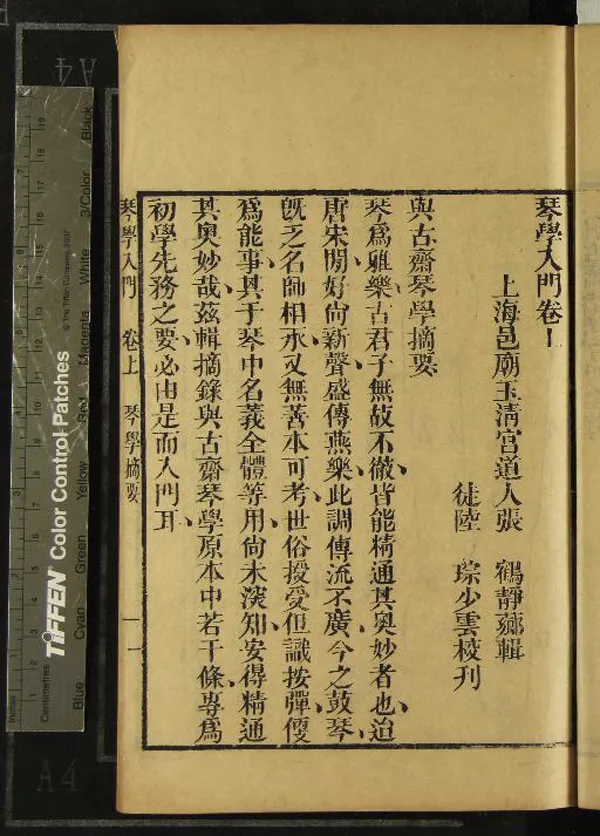 琴學入門卷上
上海邑廟玉清宮道人張 鶴靜薌輯
徒陸 琮少雲校刊
與古齋琴學摘要
琴爲雅樂古君子無故不徹皆能精通其奧妙者也迨
唐宋閒好尙新聲盛傳燕樂此調傳流不廣今之鼓琴
旣乏名師相承又無善本可考世俗授受但識按彈便
爲能事其于琴中名義全體等用尙未深知安得精通
其奧妙哉茲輯摘錄與古齋琴學原本中若干條專爲
初學先務之要必由是而入門耳
琴學入門 卷上 琴學摘要 一
A4
A4
Inches
Centimetres
TIFFEN® Color Control Patches
© The Tiffen Company, 2007
Blue
Cyan
Green
Yellow
Red
Magenta
White
3/Color
Black